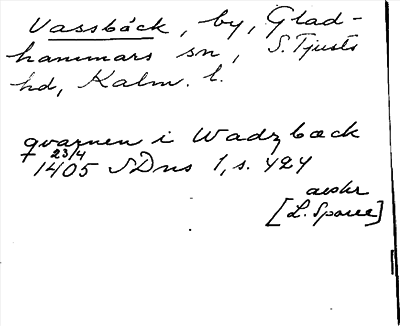 Vassbäck, by, Glad-
hammars sn, S. Tjusts
hd, Kalm. l.
qvarnen i Wadzbæck
23/4
1405 SDns 1, s. 424
avskr
[L. Sparre]